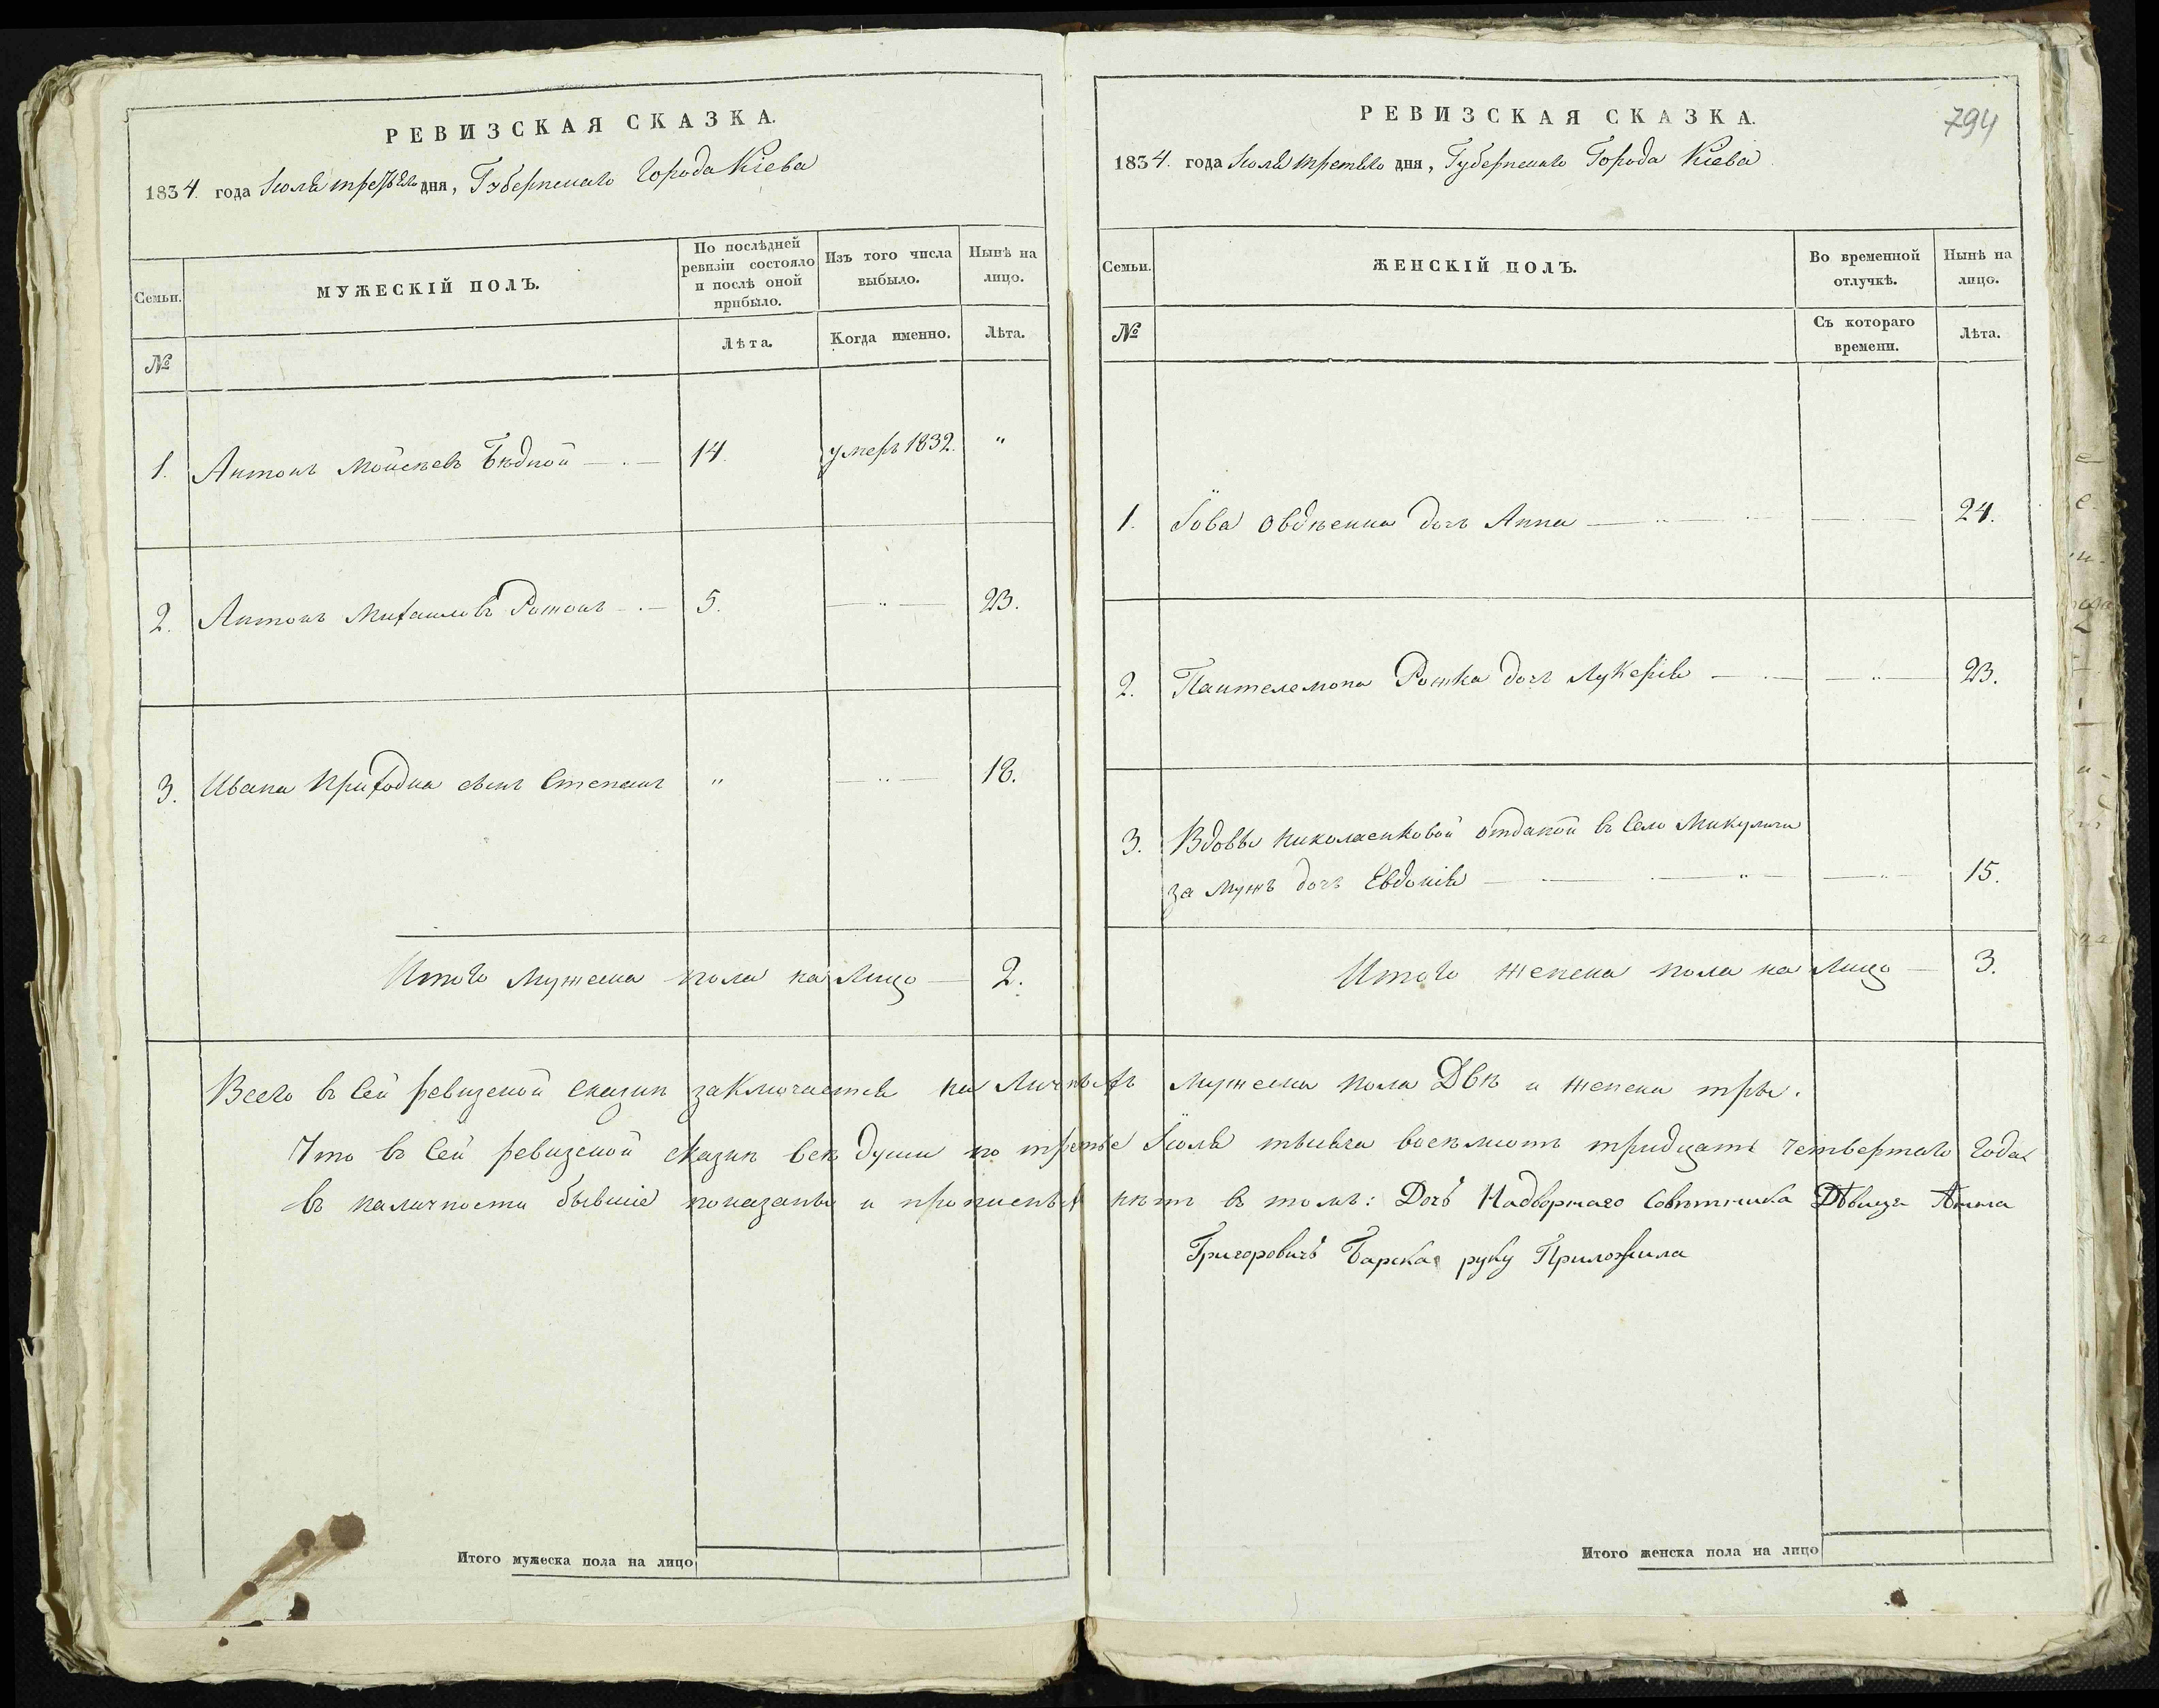 РЕВИЗСКАЯ СКАЗКА.
1834. года Іюля третьяго дня, Губернскаго Города Кіева
Семьи.
МУЖЕСКІЙ ПОЛЪ.
По послѣдней
ревизіи состояло
и послѣ оной
прибыло.
Изъ того числа
выбыло.
Нынѣ на
лицо.
№
Лѣта.
Когда именно.
Лѣта.
1. Антонъ Мойсѣевъ Бѣдной 14. умеръ 1832. "
2. Антонъ Михаиловъ 5. 23.
3. Ивана Приходка сынъ Степанъ " 18.
Итого Мужеска пола на Лицо 2.
РЕВИЗСКАЯ СКАЗКА.
794
1834. года Іюля третьяго дня, Губернскаго Города Кіева
Семьи.
ЖЕНСКІЙ ПОЛЪ.
Во временной
отлучкѣ.
Нынѣ на
лицо.
№
Съ котораго
времени.
Лѣта.
1. Іова Овдѣенка дочь Анна 24.
2. Пантелемона дочь Лукерія 23.
3. Вдовы Николаенковой отданой въ Село Микуличи
за Мужъ дочь Евдокія 15.
Итого женска пола на Лицо 3.
Всего въ Сей ревизской сказкѣ заключается на Личныхъ Мужеска пола Двѣ и женска тры.
Что въ Сей ревизской сказкѣ всѣ души по третье Іюля тысяча восѣмсотъ тридцать четвертаго года
въ наличности бывшіе показаны и прописныхъ нѣтъ въ томъ: Дочь Надворнаго Совѣтника Дѣвица Анна
Григоровичъ Барская руку Приложила
Итого мужеска пола на лицо
Итого женска пола на лицо